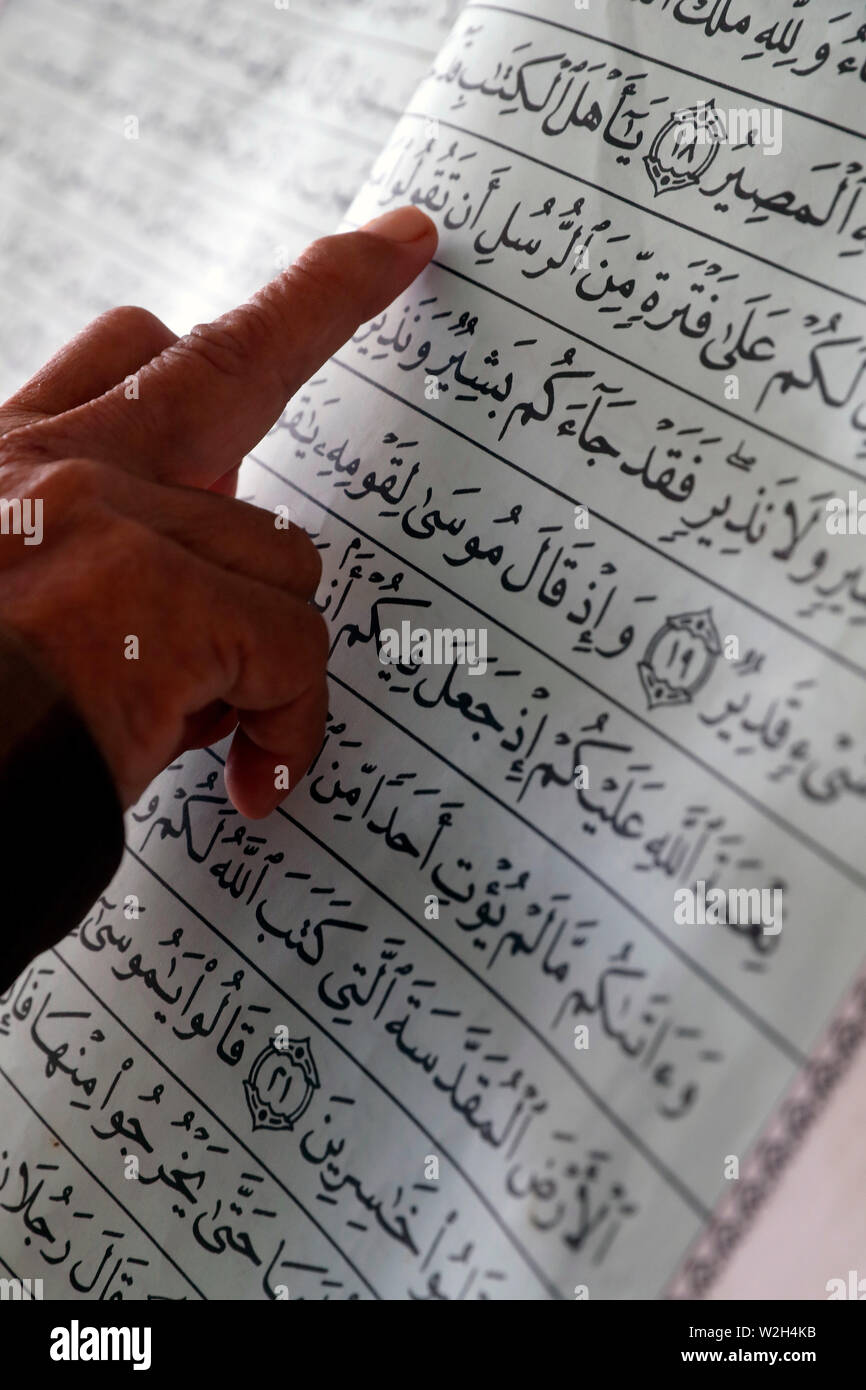 وَلِلَّهِ مُلْكُ
ٱلْمَصِيرُ ١٨ يَٰٓأَهْلَ ٱلْكِتَٰبِ قَدْ
لَكُمْ عَلَىٰ فَتْرَةٍ مِّنَ ٱلرُّسُلِ أَن تَقُولُوا۟
وَلَا نَذِيرٍ ۖ فَقَدْ جَآءَكُم بَشِيرٌ وَنَذِيرٌ
شَىْءٍ قَدِيرٌ ١٩ وَإِذْ قَالَ مُوسَىٰ لِقَوْمِهِۦ
نِعْمَةَ ٱللَّهِ عَلَيْكُمْ إِذْ جَعَلَ فِيكُمْ
وَءَاتَىٰكُم مَّا لَمْ يُؤْتِ أَحَدًا مِّنَ
ٱلْأَرْضَ ٱلْمُقَدَّسَةَ ٱلَّتِى كَتَبَ ٱللَّهُ لَكُمْ وَ
خَٰسِرِينَ ٢١ قَالُوا۟ يَٰمُوسَىٰٓ
حَتَّىٰ يَخْرُجُوا۟ مِنْهَا
قَالَ رَجُلَانِ
alamy
Image ID: W2H4KB
www.alamy.com